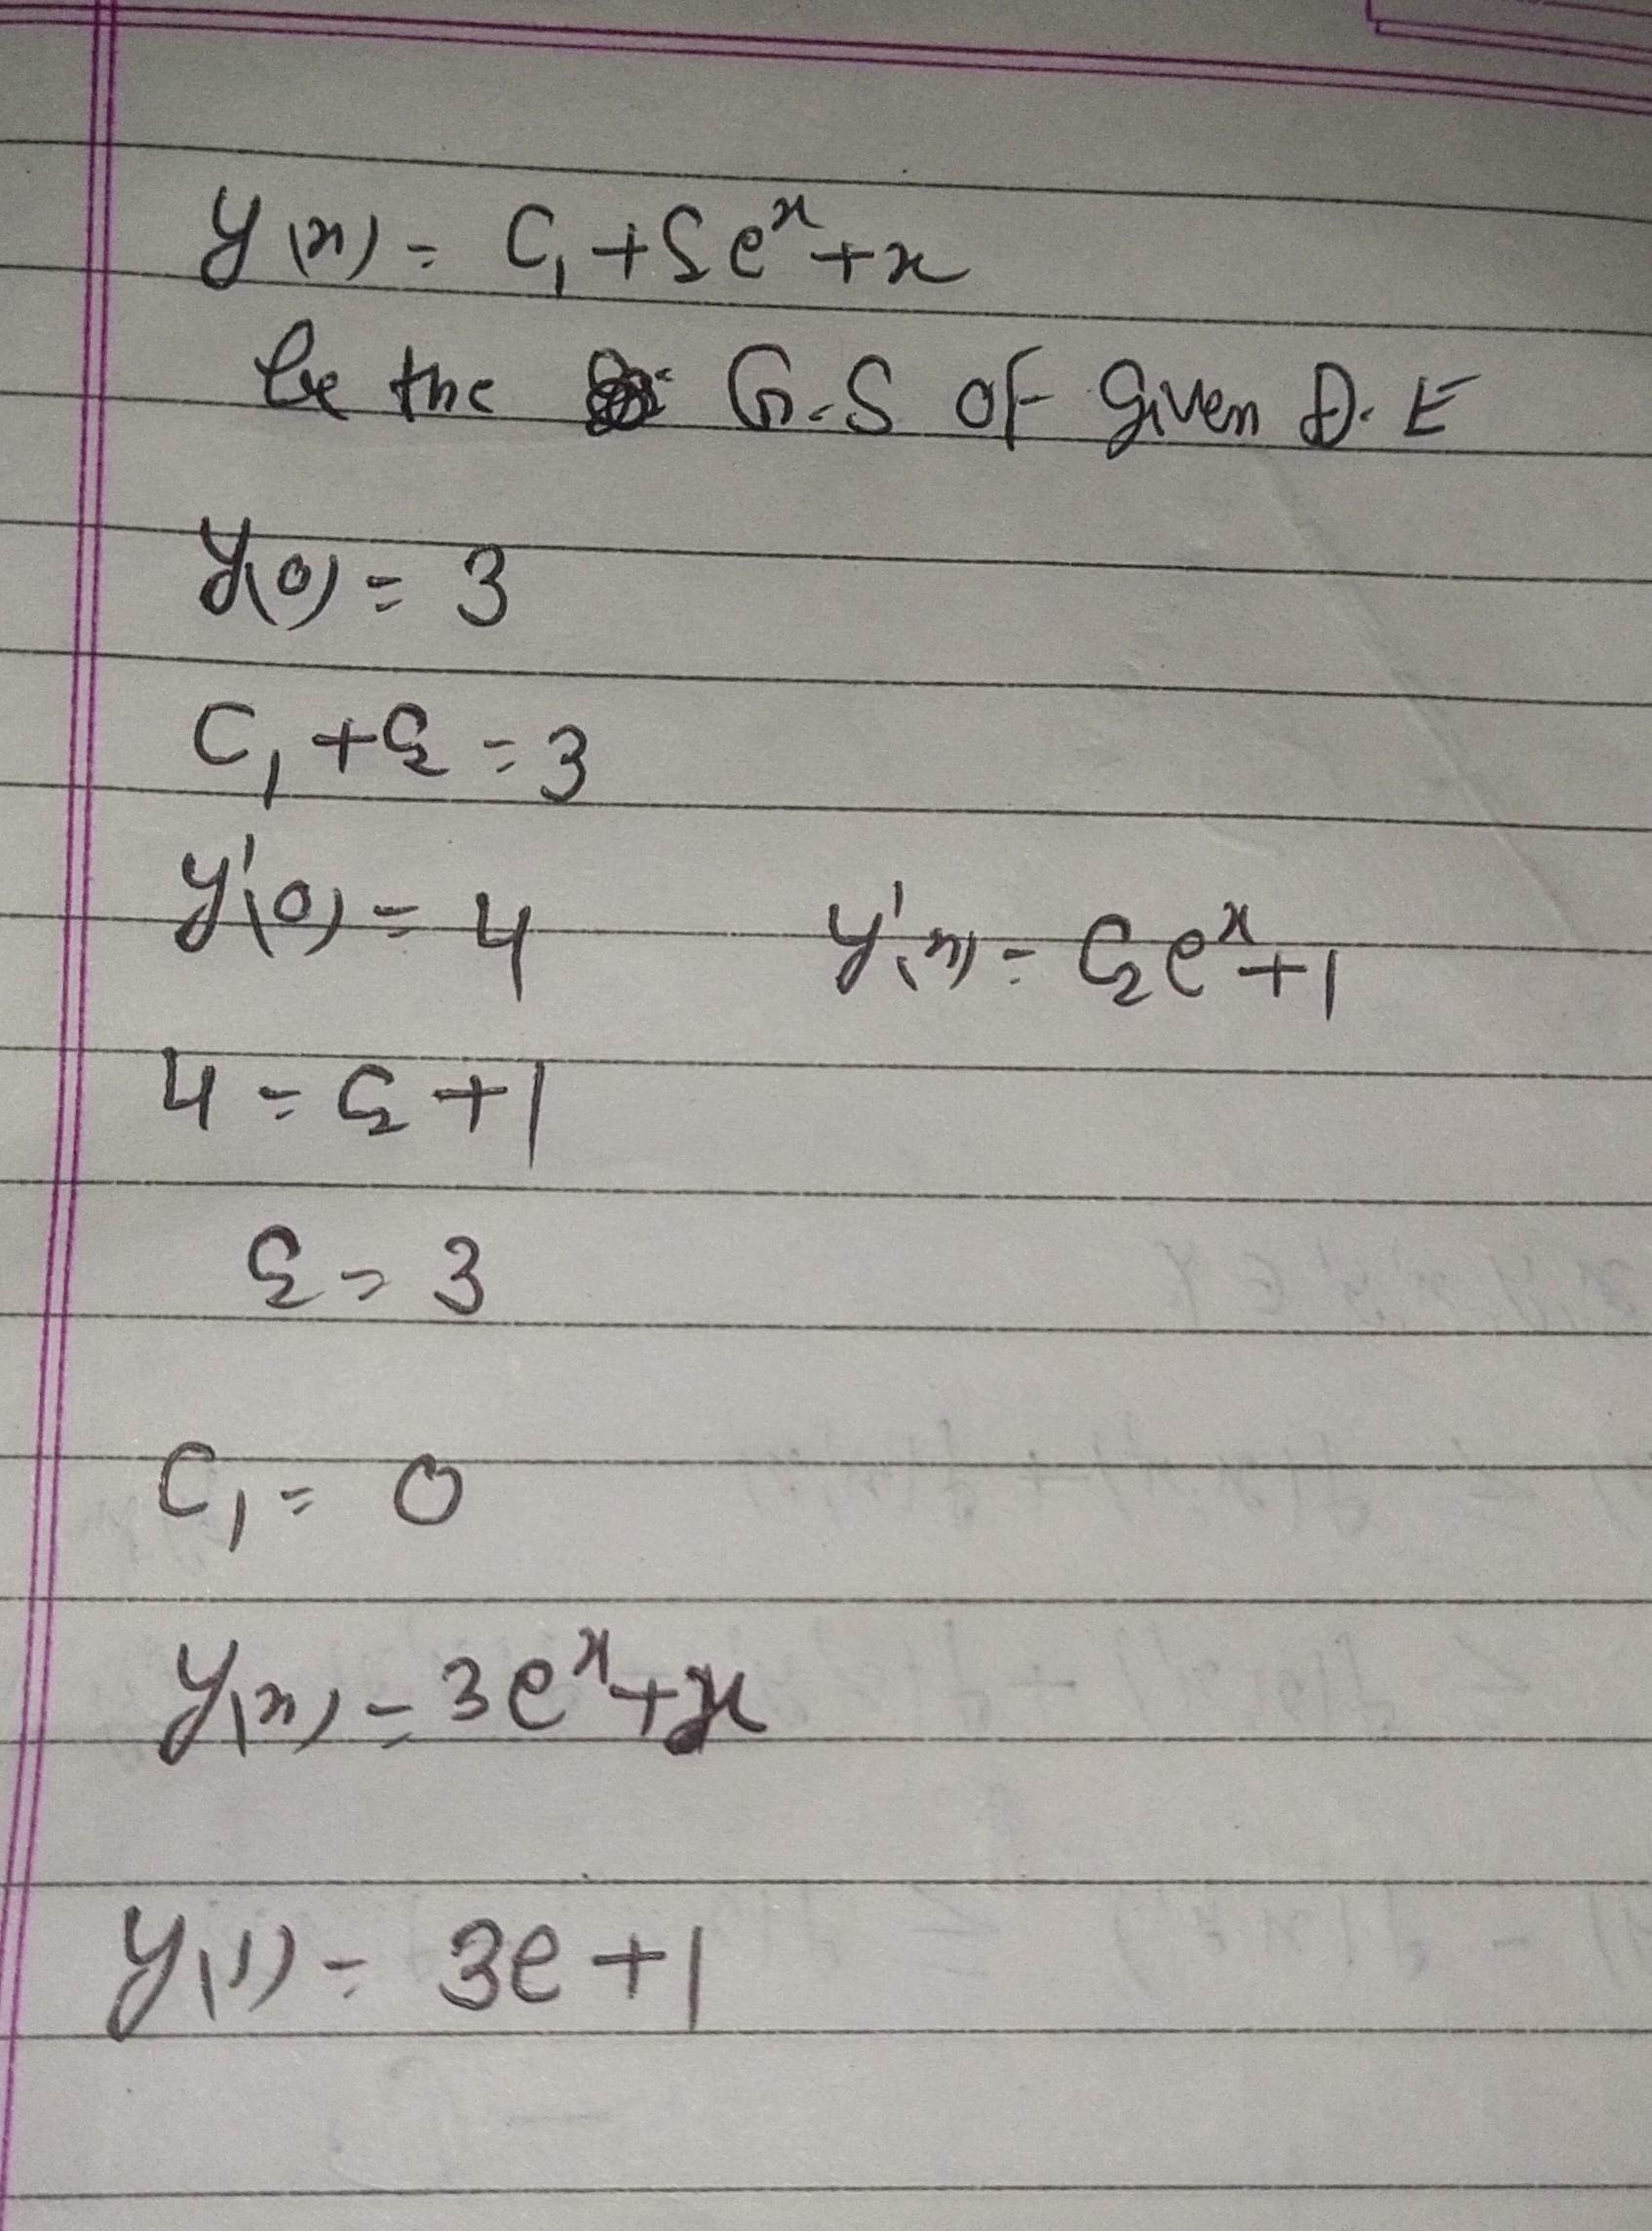 y(x) = C₁ + C₂eˣ + x
be the G.S of given D.E
y(0) = 3
C₁ + C₂ = 3
y'(0) = 4 y'(x) = C₂eˣ + 1
4 = C₂ + 1
C₂ = 3
C₁ = 0
y(x) = 3eˣ + x
y(1) = 3e + 1